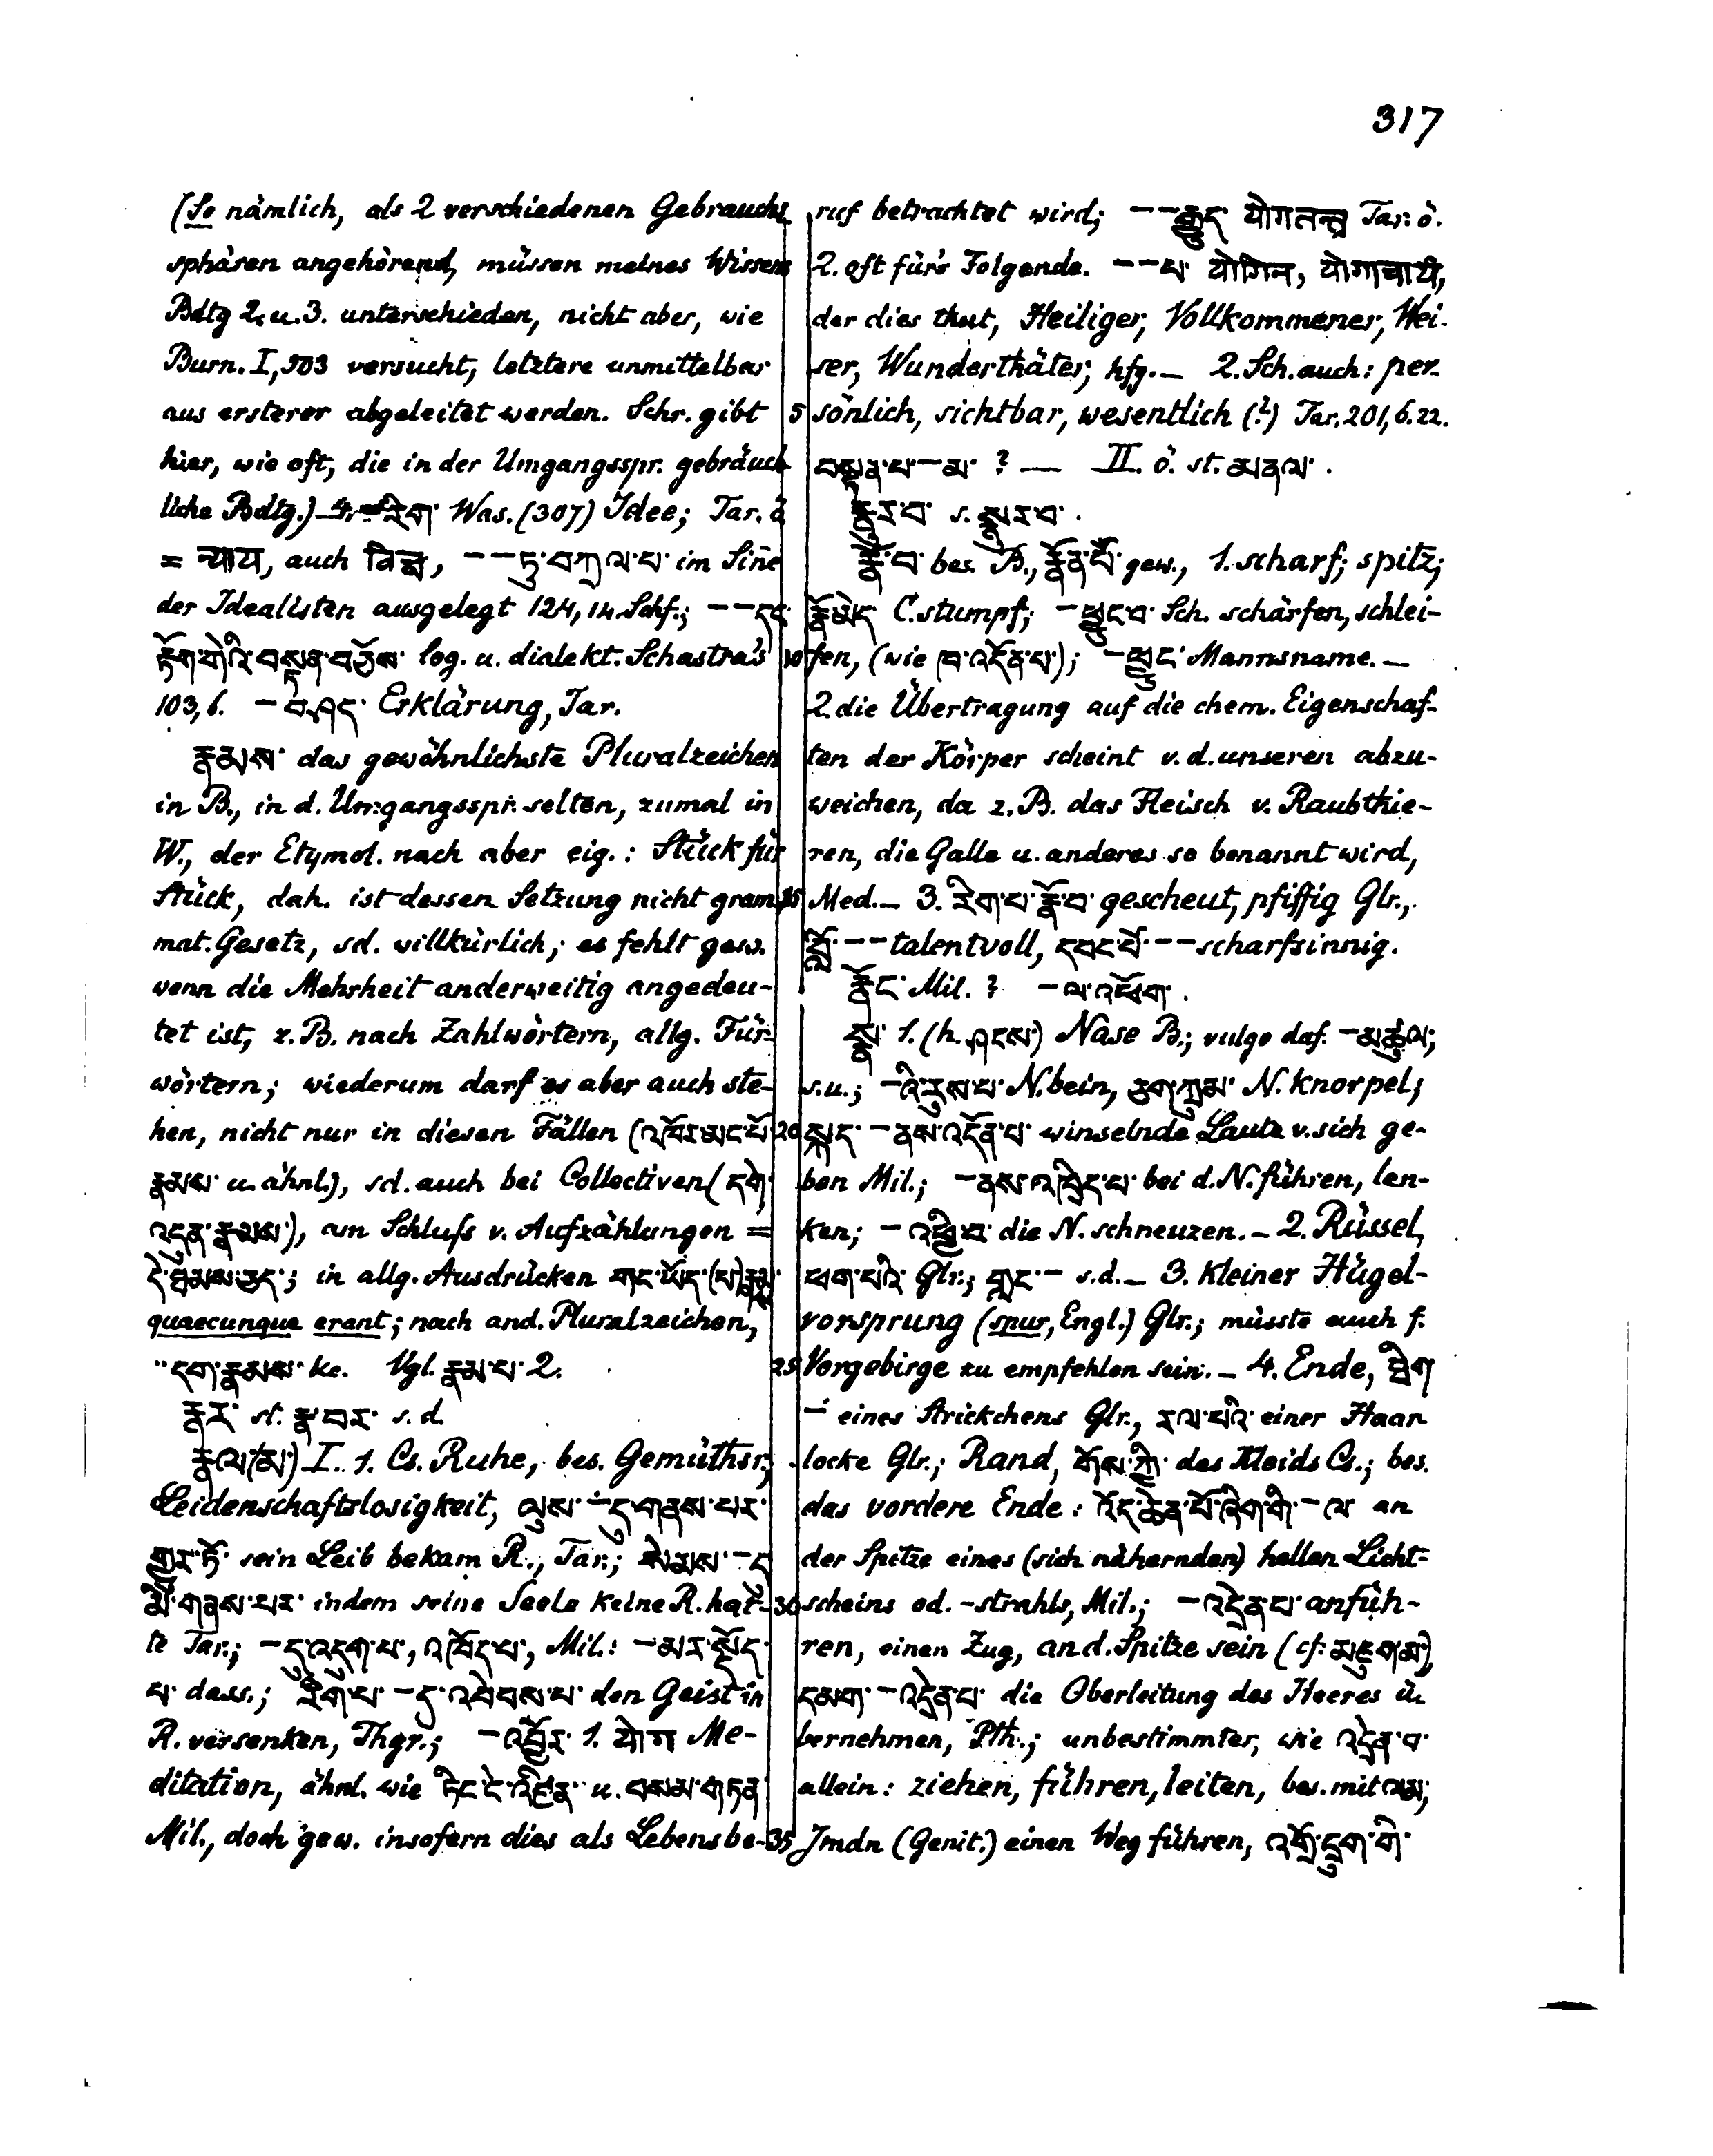 317
(So nämlich, als 2 verschiedenen Gebrauchs
sphären angehörend, müssen meines Wissens
Bdtg 2. u. 3. unterschieden, nicht aber, wie
Burn. I, 503 versucht, letztere unmittelbar
aus ersterer abgeleitet werden. Schr. gibt
hier, wie oft, die in der Umgangsspr. gebräuch
liche Bdtg.) རིག་ Was. (307) Idee; Tar. ö
= न्याय, auch — — ཏུ་བཀྲལ་པ་ im Sin̄e
der Idealisten ausgelegt 124, 14. Schf.; — — དང་
རྟོག་གེའི་བསྟན་བཅོས་ log. u. dialekt. Schastra's
103, 6. — བཤད་ Erklärung, Tar.
རྣམས་ das gewöhnlichste Pluralzeichen
in B., in d. Umgangsspr. selten, zumal in
W., der Etymol. nach aber eig.: Stück für
Stück, dah. ist dessen Setzung nicht gram-
mat. Gesetz, sd. willkürlich; es fehlt gew.
wenn die Mehrheit anderweitig angedeu-
tet ist, z. B. nach Zahlwörtern, allg. Für-
wörtern; wiederum darf es aber auch ste-
hen, nicht nur in diesen Fällen (འཁོར་མང་པོ་
རྣམས་ u. ähnl.), sd. auch bei Collectiven (དགེ་
འདུན་རྣམས་), am Schluſs v. Aufzählungen =
དེ་ཐམས་ཅད་; in allg. Ausdrücken གང་ཡོད་(པ)རྣམས་
quaecunque erant; nach and. Pluralzeichen,
"དག་རྣམས་ kc. Vgl. རྣམ་པ་ 2.
རྣར་ st. རྣ་བར་ s. d.
རྣལ་(མ་) I. 1. Cs. Ruhe, bes. Gemüthsr.,
Leidenschaftslosigkeit, ལུས་ — དུ་གནས་པར་
གྱུར་ཏོ་ sein Leib bekam R., Tar.; སེམས་ — དུ
མི་གནས་པར་ indem seine Seele keine R. hat-
te Tar.; — དུ་འདུག་པ་, འཁོད་པ་, Mil.: — མར་སྡོད་
པ་ dass.; རིག་པ་ — དུ་འབེབས་པ་ den Geist in
R. versenken, Thgr.; — འབྱོར་ 1. योग Me-
ditation, ähnl. wie ཏིང་ངེ་འཛིན་ u. བསམ་གཏན་
Mil., doch gew. insofern dies als Lebensbe-
ruf betrachtet wird; — — རྒྱུད་ योगतन्त्र Tar. ö.
2. oft für's Folgende. — — པ་ योगिन्, योगाचार्य,
der dies thut, Heiliger, Vollkommener, Wei-
ser, Wunderthäter, hfg. — 2. Sch. auch: per-
5 sönlich, sichtbar, wesentlich (?) Tar. 201, 6. 22.
བསྟན་པ་ — མ་ ? — II. ö. st. མནལ་.
རྣུར་བ་ s. སྣུར་བ་.
རྣོ་བ་ bes. B., རྣོན་པོ་ gew., 1. scharf; spitz;
རྣོ་མེད་ C. stumpf; — སྦྱང་བ་ Sch. schärfen, schlei-
10 fen, (wie ཁ་འདོན་པ་); — Mannsname. —
2. die Übertragung auf die chem. Eigenschaf-
ten der Körper scheint v. d. unseren abzu-
weichen, da z. B. das Fleisch v. Raubthie-
ren, die Galle u. anderes so benannt wird,
15 Med. — 3. རིག་པ་རྣོ་བ་ gescheut, pfiffig Glr.,
བློ་ — — talentvoll, དབང་པོ་ — — scharfsinnig.
རྣོང་ Mil. ? — ལ་འཕོག་.
སྣ་ 1. (h. ཤངས་) Nase B.; vulgo daf. — མཚུལ་;
s. u.; — འི་རུས་པ་ N. bein, ཅག་ཀྲུམ་ N. knorpel;
20 སྐད་ — ནས་འདོན་པ་ winselnde Laute v. sich ge-
ben Mil.; — ནས་འཁྲིད་པ་ bei d. N. führen, len-
ken; — འཕྱི་བ་ die N. schneuzen. — 2. Rüssel,
ཕག་པའི་ Glr.; གླང་ — s. d. — 3. kleiner Hügel-
vorsprung (spur, Engl.) Glr.; müsste auch f.
25 Vorgebirge zu empfehlen sein. — 4. Ende, ཐིག
— eines Strickchens Glr., རལ་པའི་ einer Haar
locke Glr.; Rand, གོས་ཀྱི་ des Kleids Cs.; bes.
das vordere Ende: འོད་ཆེན་པོ་ཞིག་གི་ — ལ་ an
der Spitze eines (sich nähernden) hellen Licht-
30 scheins od. -strahls, Mil.; — འདྲེན་པ་ anfüh-
ren, einen Zug, an d. Spitze sein (cf. མཇུག་མ་),
དམག་ — འདྲེན་པ་ die Oberleitung des Heeres ü.
bernehmen, Pth.; unbestimmter, wie འདྲེན་པ་
allein: ziehen, führen, leiten, bes. mit ལམ་,
35 Jmdn (Genit.) einen Weg führen, འགྲོ་དྲུག་གི་